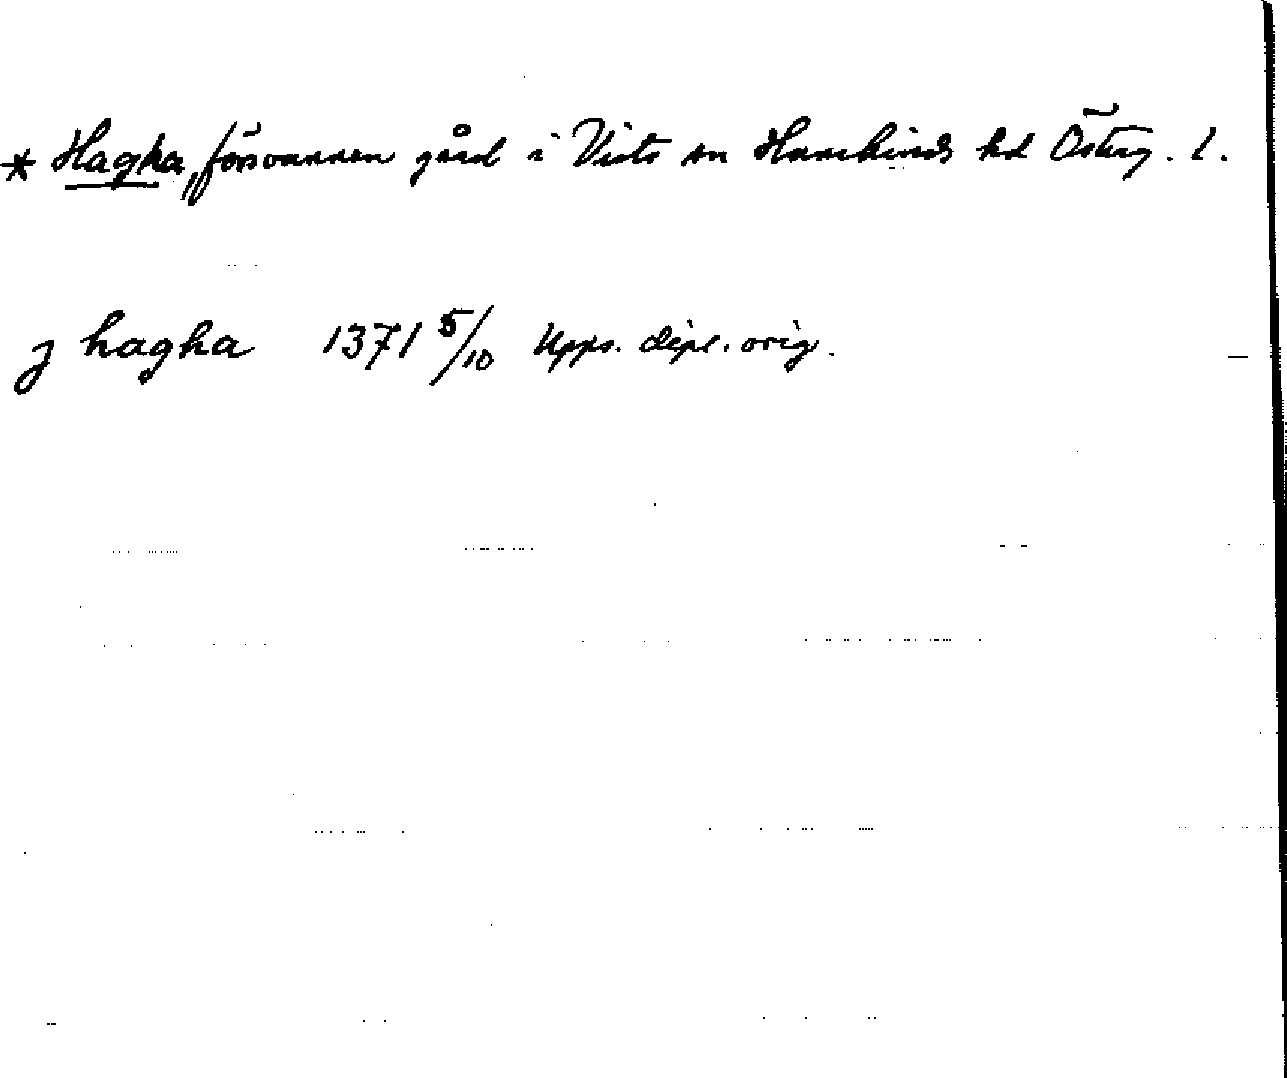 * Hagha, försvunnen gård i Vists sn Hanekinds hd Österg. l.
j hagha 1371 5/10 Upps. dipl. orig.